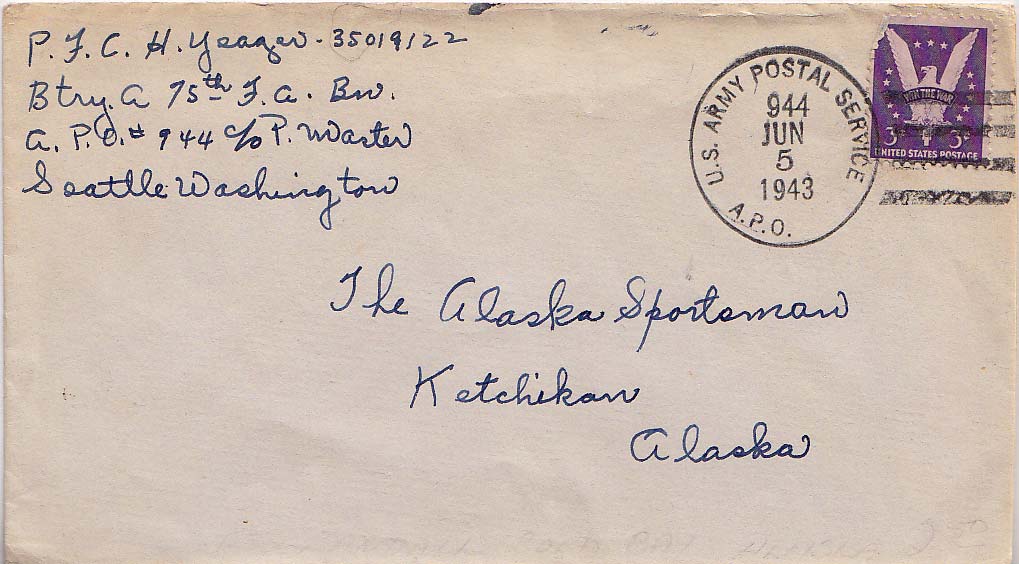 P.F.C. H. Yeager - 35019122
Btry. A 75th F.A. Bn.
A.P.O. # 944 c/o P. Master
Seattle Washington
U.S. ARMY POSTAL SERVICE
944
JUN
5
1943
A.P.O.
WIN THE WAR
3¢ 3¢
UNITED STATES POSTAGE
The Alaska Sportsman
Ketchikan
Alaska